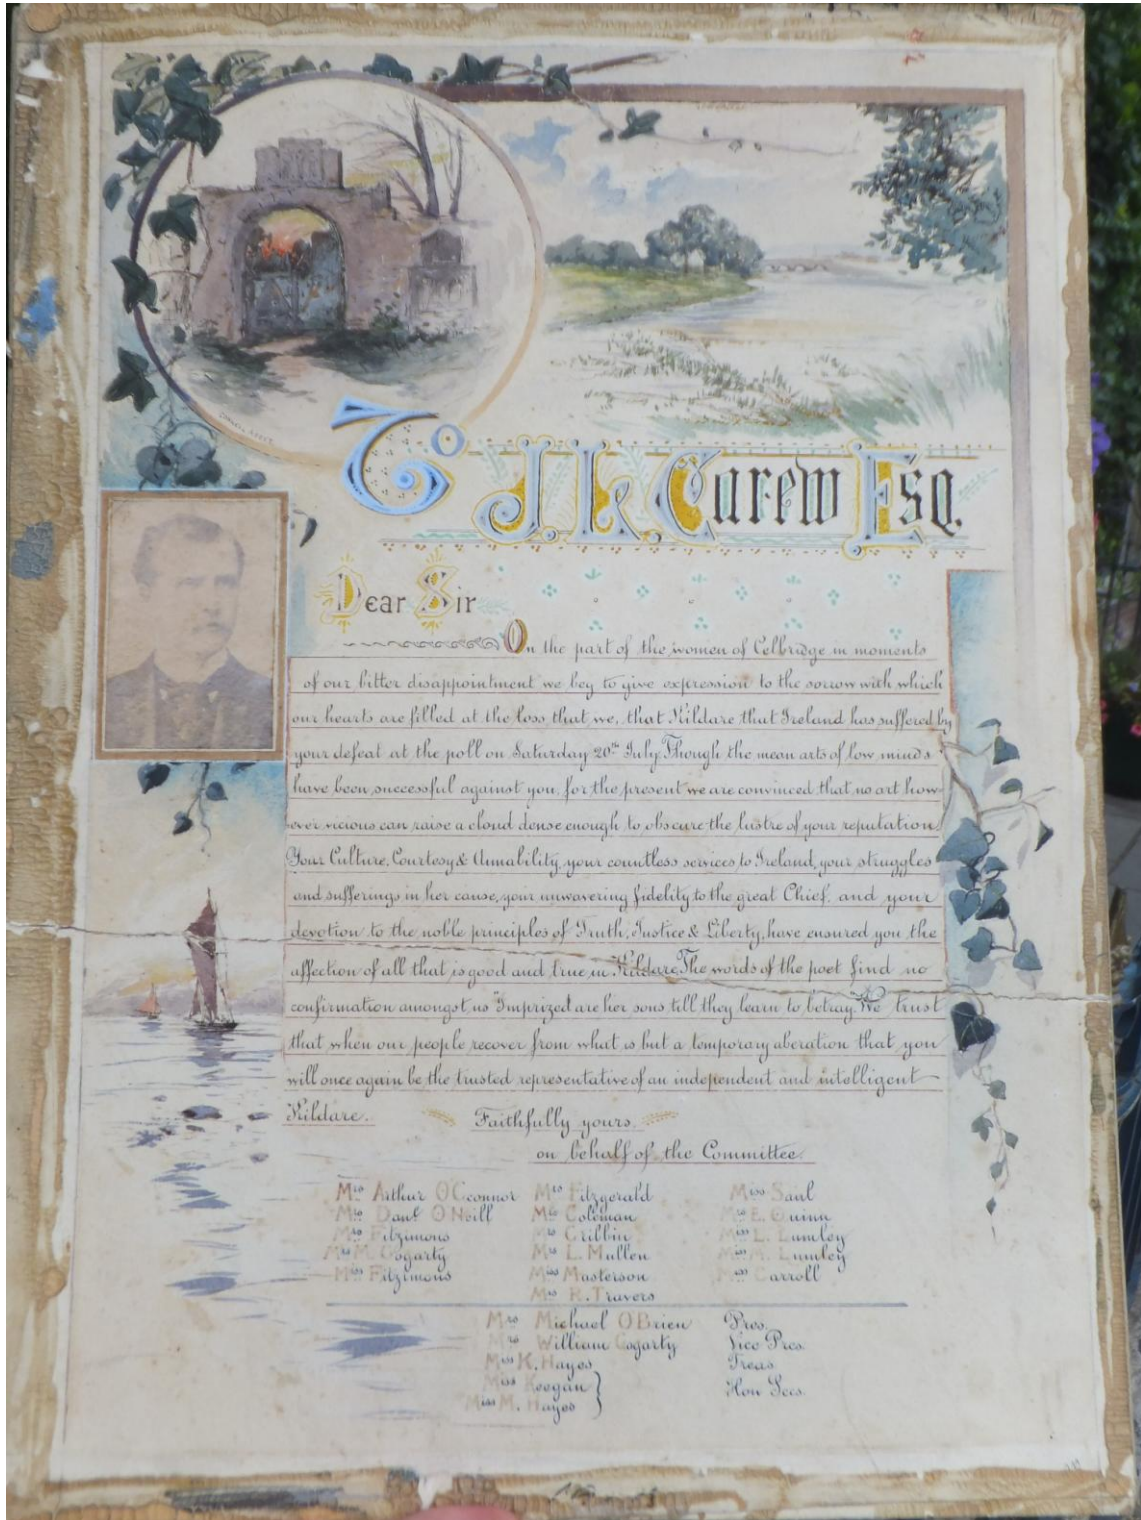 To J. L. Carew Esq.
Dear Sir
On the part of the women of Celbridge in moments
of our bitter disappointment we beg to give expression to the sorrow with which
our hearts are filled at the loss that we, that Kildare that Ireland has suffered by
your defeat at the poll on Saturday 20th July. Though the mean arts of low minds
have been successful against you, for the present we are convinced that no art how-
ever vicious can raise a cloud dense enough to obscure the lustre of your reputation
Your Culture, Courtesy & Amability, your countless services to Ireland, your struggles
and sufferings in her cause, your unwavering fidelity to the great Chief, and your
devotion to the noble principles of Truth, Justice & Liberty, have ensured you the
affection of all that is good and true in Kildare. The words of the poet find no
confirmation amongst us "Unprized are her sons till they learn to betray. We trust
that when our people recover from what is but a temporary aberation that you
will once again be the trusted representative of an independent and intelligent
Kildare.
Faithfully yours
on behalf of the Committee.
Mrs Arthur O'Connor Mrs Fitzgerald Miss Saul
Mrs Danl O'Neill Mrs Coleman Mrs E. Quinn
Mrs Fitzimons Mrs Cribbin Miss L. Lumley
Mrs M. Gogarty Mrs L. Mullen Miss A. Lumley
Miss Fitzimons Miss Masterson Miss Carroll
Mrs R. Travers
Mrs Michael O'Brien Pres.
Mrs William Gogarty Vice Pres
Miss K. Hayes Treas
Miss Keegan
Miss M. Hayes
Hon Secs